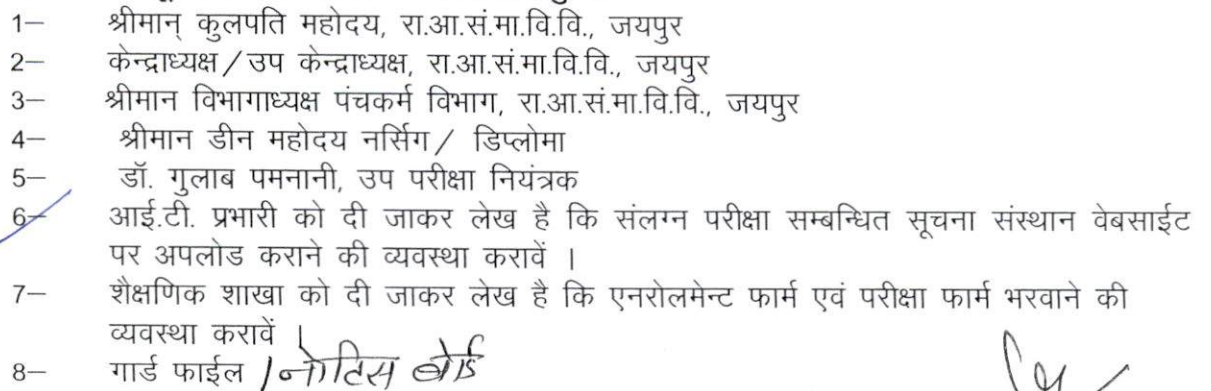 1— श्रीमान् कुलपति महोदय, रा.आ.सं.मा.वि.वि., जयपुर
2— केन्द्राध्यक्ष/उप केन्द्राध्यक्ष, रा.आ.सं.मा.वि.वि., जयपुर
3— श्रीमान विभागाध्यक्ष पंचकर्म विभाग, रा.आ.सं.मा.वि.वि., जयपुर
4— श्रीमान डीन महोदय नर्सिग/ डिप्लोमा
5— डॉ. गुलाब पमनानी, उप परीक्षा नियंत्रक
6— आई.टी. प्रभारी को दी जाकर लेख है कि संलग्न परीक्षा सम्बन्धित सूचना संस्थान वेबसाईट
पर अपलोड कराने की व्यवस्था करावें ।
7— शैक्षणिक शाखा को दी जाकर लेख है कि एनरोलमेन्ट फार्म एवं परीक्षा फार्म भरवाने की
व्यवस्था करावें ।
8— गार्ड फाईल /नोटिस बोर्ड